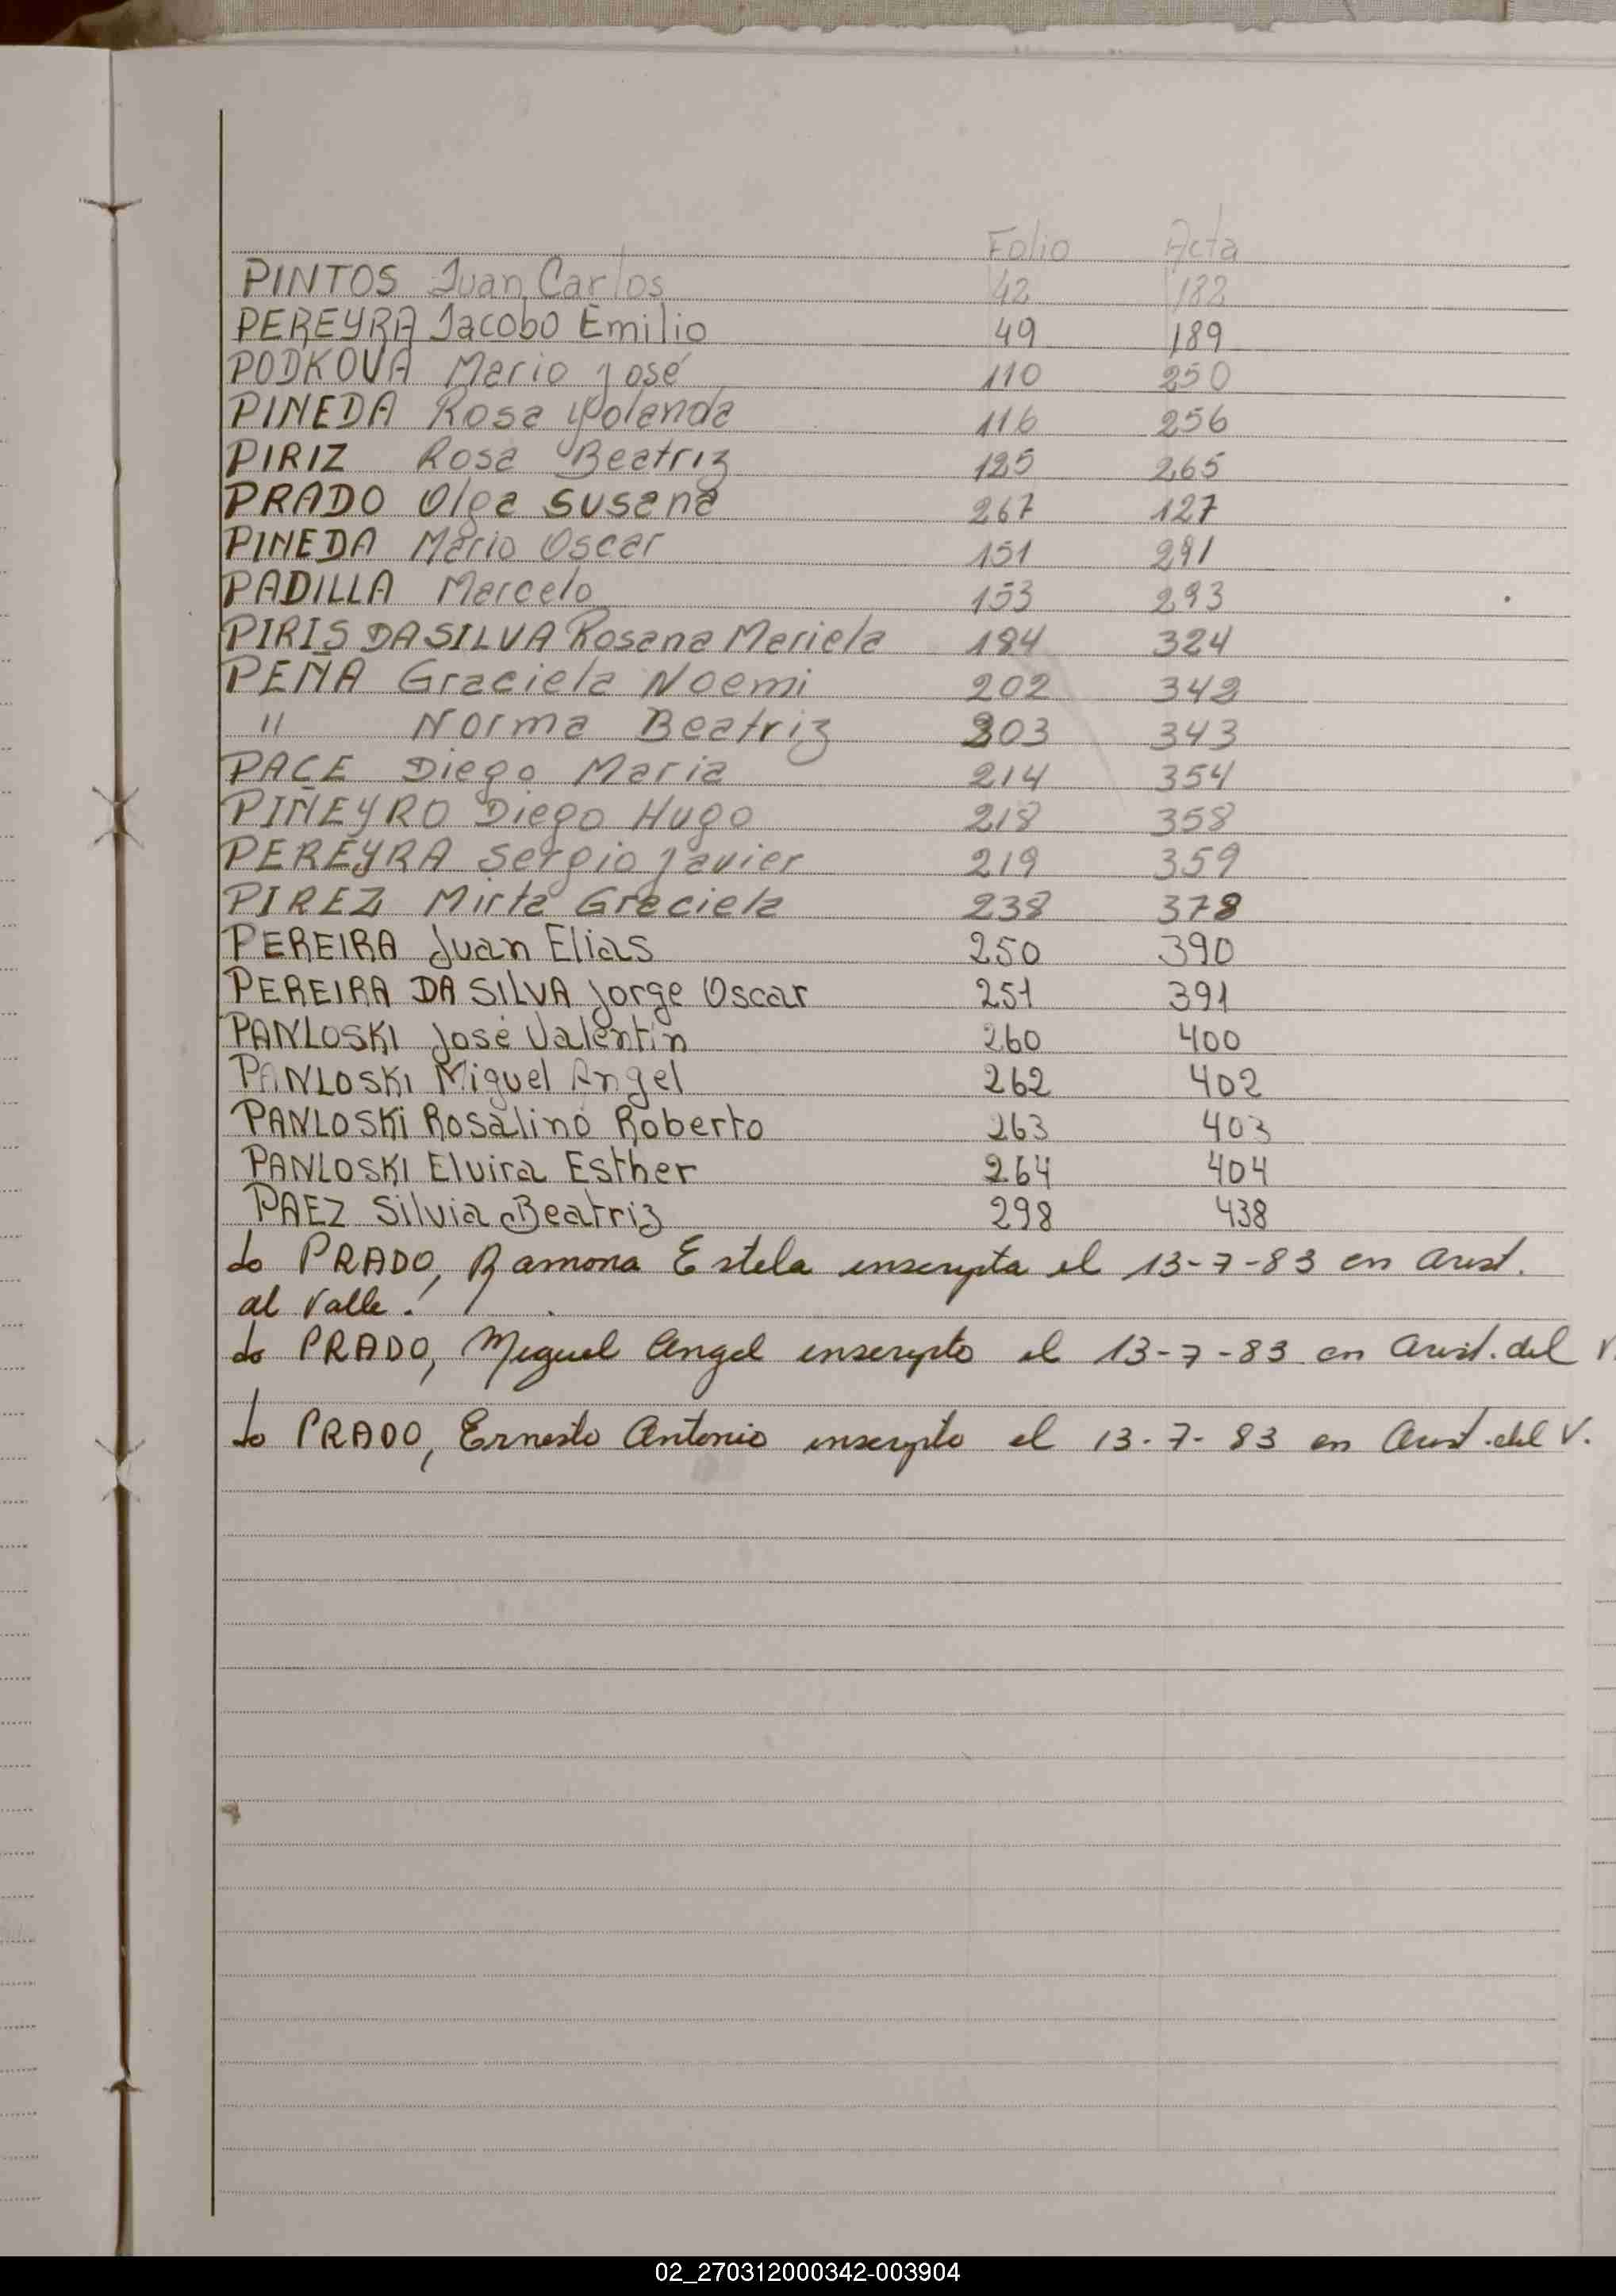 Folio Acta
PINTOS Juan Carlos 42 182
PEREYRA Jacobo Emilio 49 189
PODKOVA Mario José 110 250
PINEDA Rosa Yolanda 116 256
PIRIZ Rosa Beatriz 125 265
PRADO Olga Susana 267 127
PINEDA Mario Oscar 151 291
PADILLA Marcelo 153 293
PIRIS DA SILVA Rosana Mariela 184 324
PEÑA Graciela Noemi 202 342
" Norma Beatriz 203 343
PACE Diego Maria 214 354
PIÑEYRO Diego Hugo 218 358
PEREYRA Sergio Javier 219 359
PIREZ Mirta Graciela 238 378
PEREIRA Juan Elias 250 390
PEREIRA DA SILVA Jorge Oscar 251 391
PANLOSKI José Valentín 260 400
PANLOSKI Miguel Angel 262 402
PANLOSKI Rosalino Roberto 263 403
PANLOSKI Elvira Esther 264 404
PAEZ Silvia Beatriz 298 438
do PRADO, Ramona Estela inscripta el 13-7-83 en Arist.
al Valle.
do PRADO, Miguel Angel inscripto el 13-7-83 en Arist. del V.
do PRADO, Ernesto Antonio inscripto el 13-7-83 en Arist. del V.
02_270312000342-003904